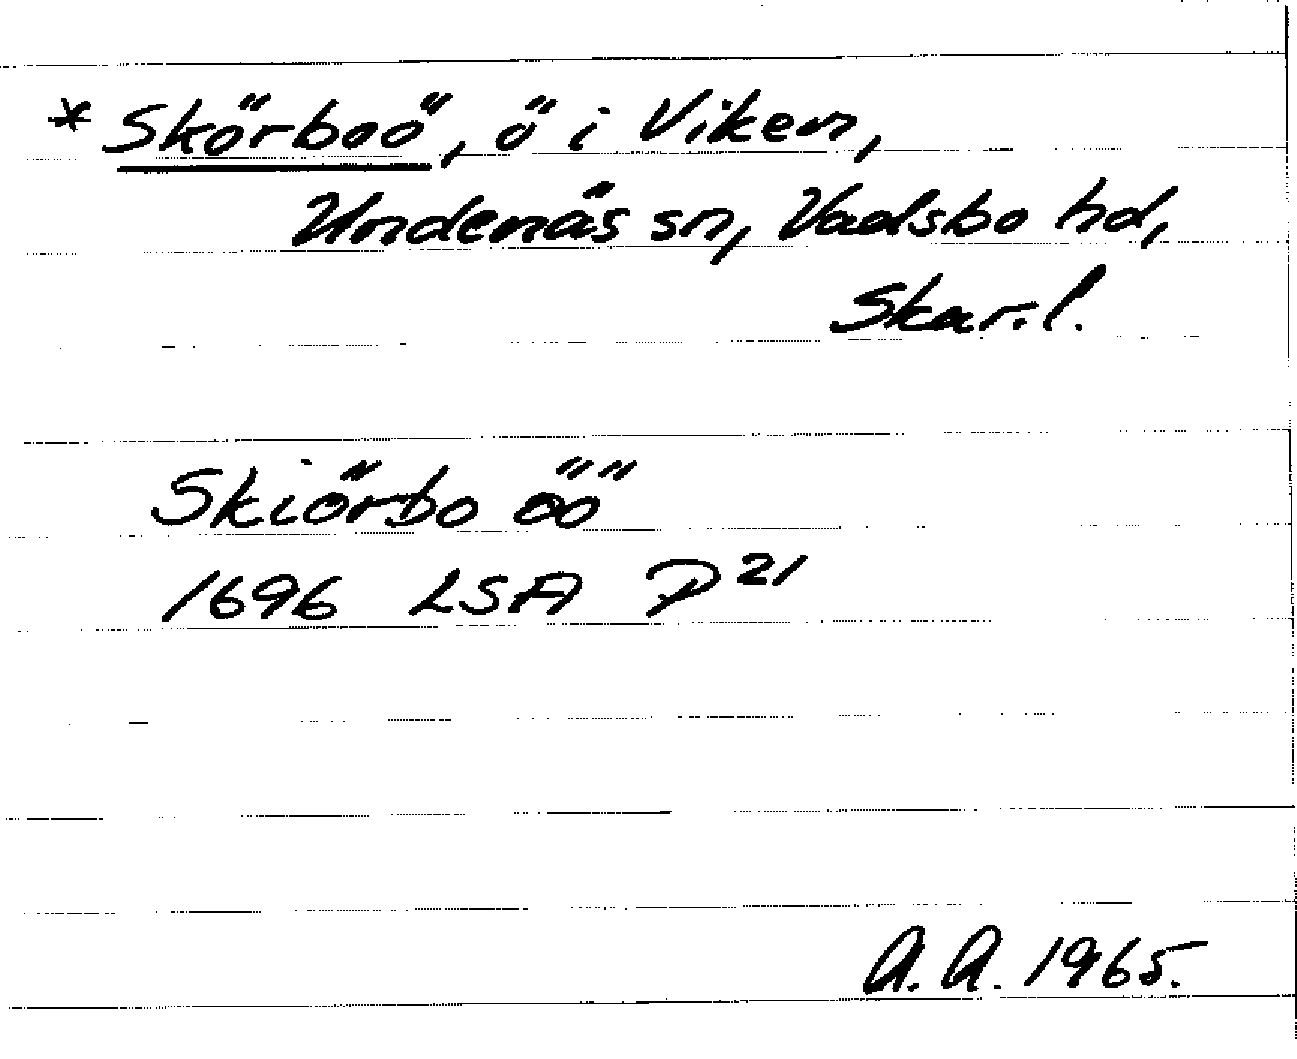 * Skörboö, ö i Viken,
Undenäs sn, Vadsbo hd,
Skar. l.
Skiörbo öö
1696 LSA P 21
A. A. 1965.